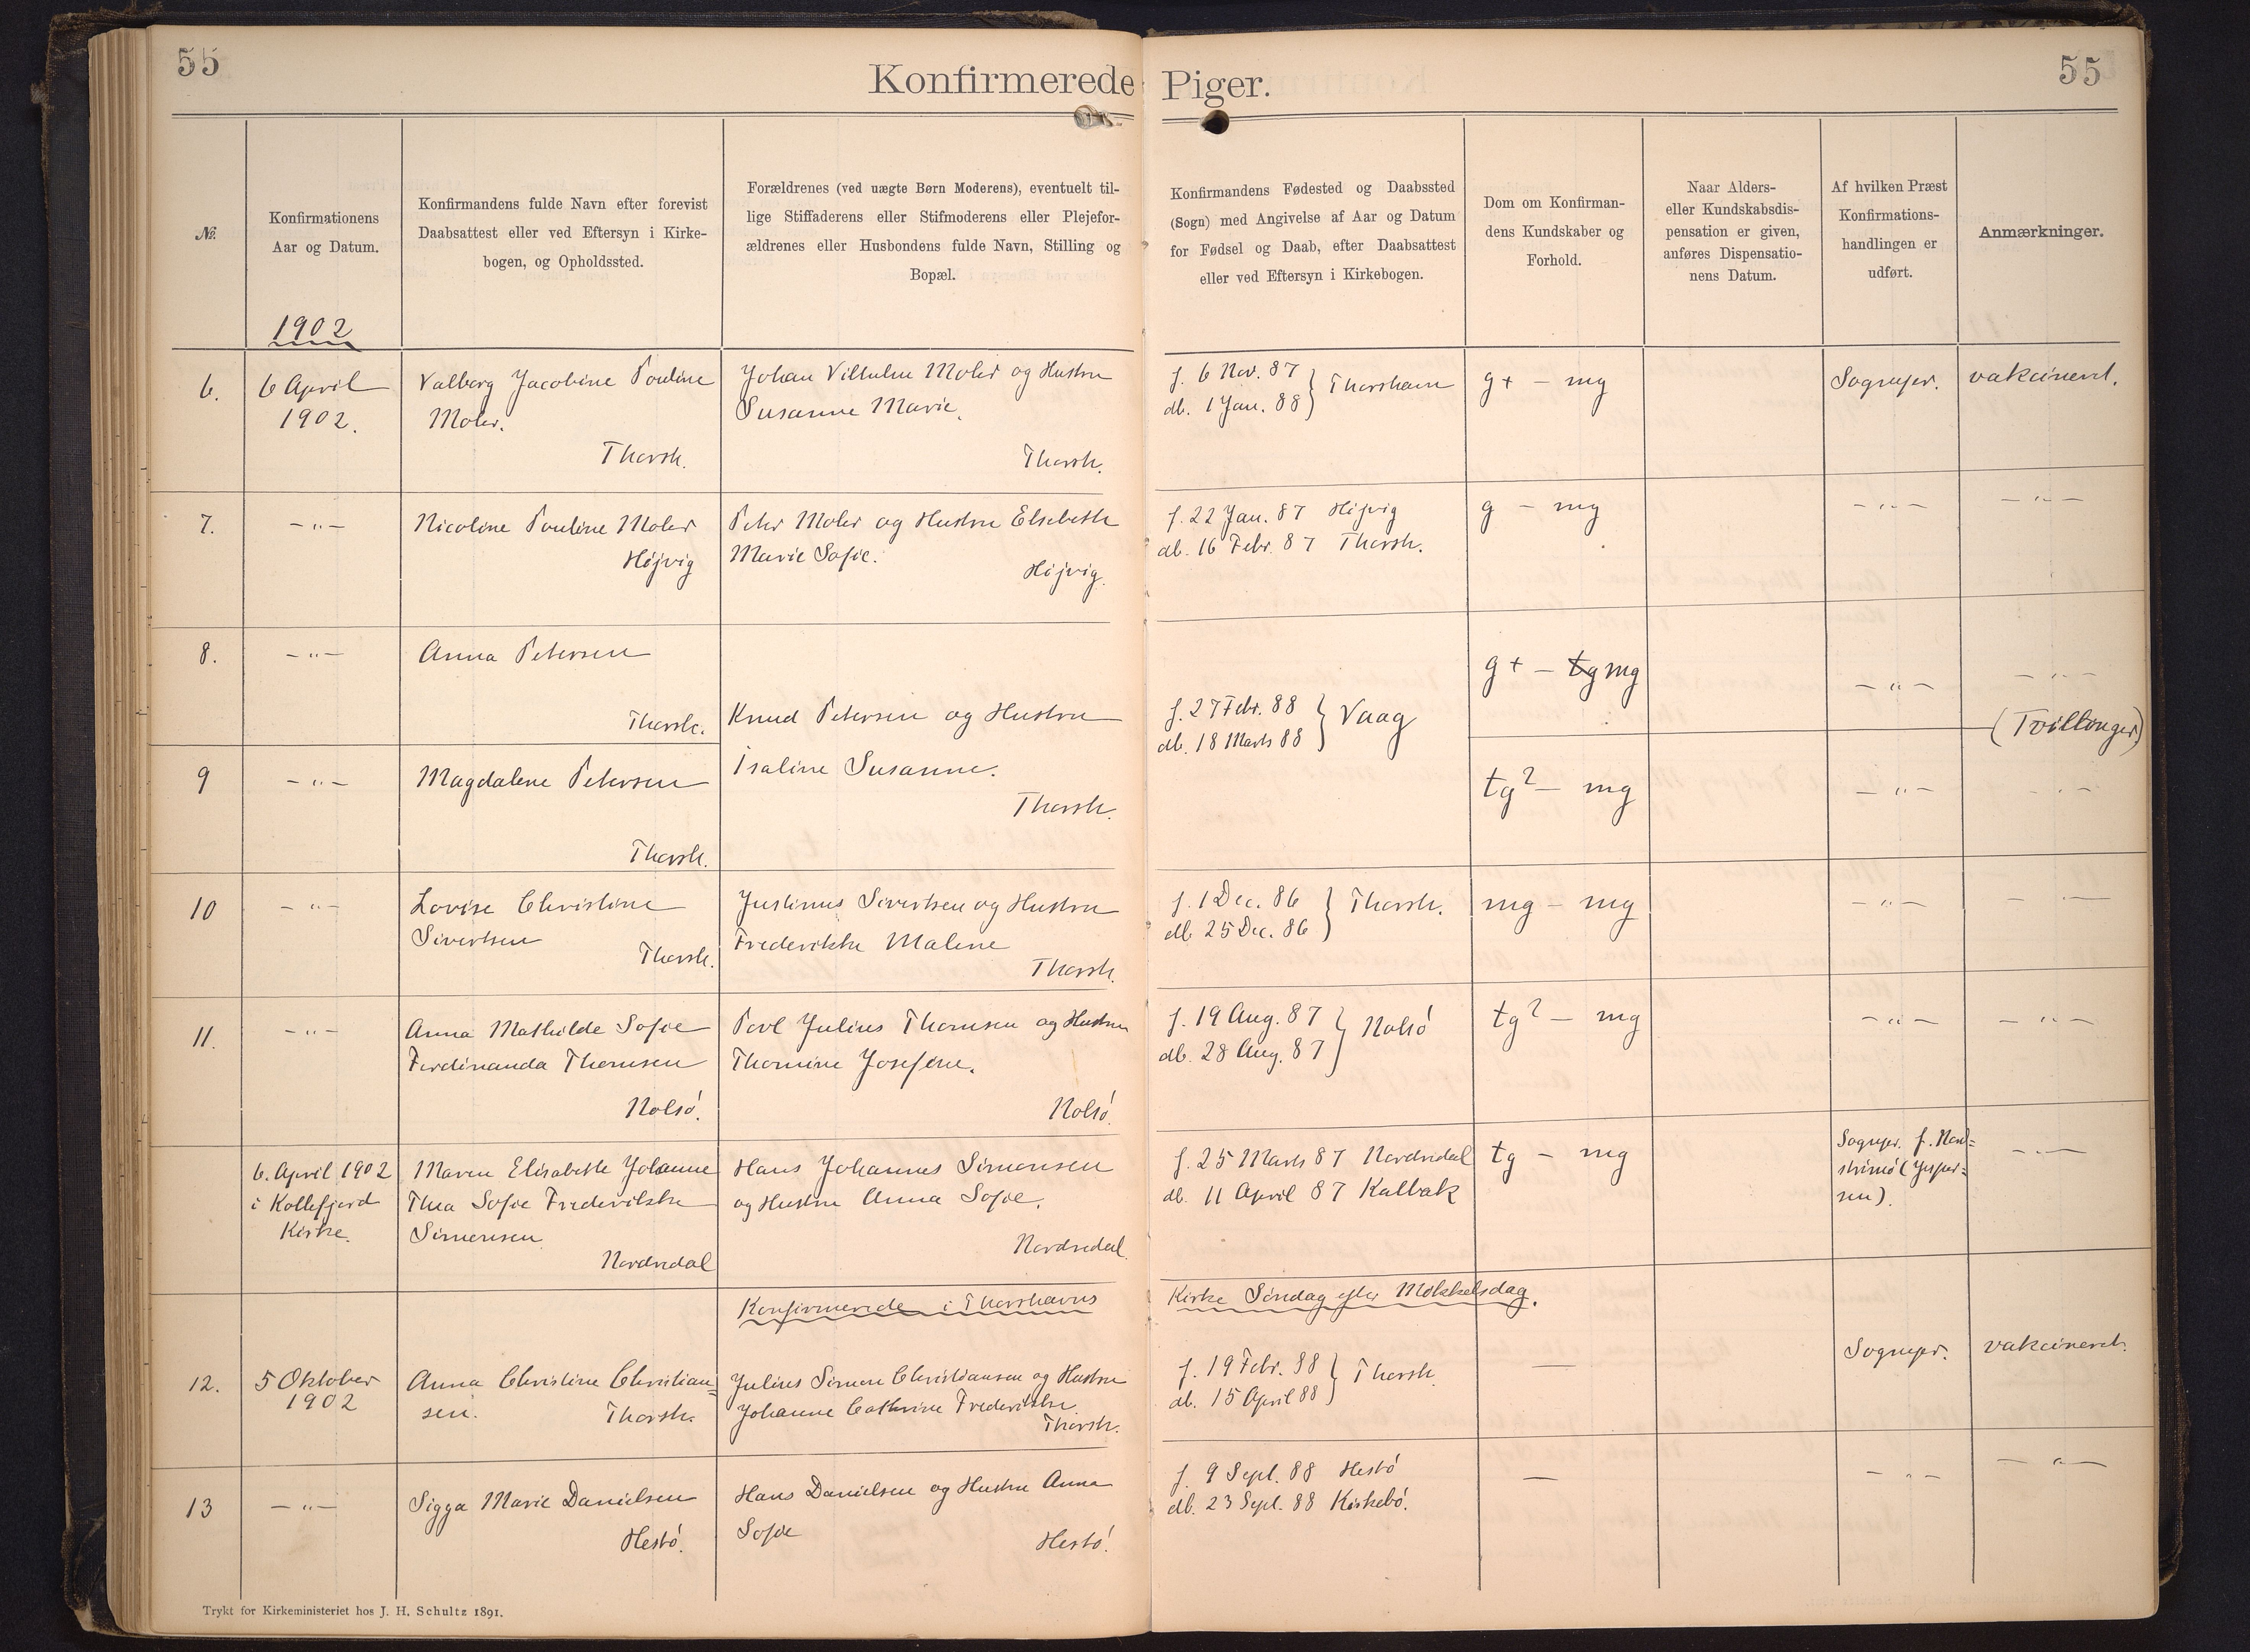 55
55
Konfirmerede Piger.
№.
Konfirmationens
Aar og Datum.
Konfirmandens fulde Navn efter forevist
Daabsattest eller ved Eftersyn i Kirke-
bogen, og Opholdssted.
Forældrenes (ved uægte Børn Moderens), eventuelt til-
lige Stiffaderens eller Stifmoderens eller Plejefor-
ældrenes eller Husbondens fulde Navn, Stilling og
Bopæl.
Konfirmandens Fødested og Daabssted
(Sogn) med Angivelse af Aar og Datum
for Fødsel og Daab, efter Daabsattest
eller ved Eftersyn i Kirkebogen.
Dom om Konfirman-
dens Kundskaber og
Forhold.
Naar Alders-
eller Kundskabsdis-
pensation er given,
anføres Dispensatio-
nens Datum.
Af hvilken Præst
Konfirmations-
handlingen er
udført.
Anmærkninger.
1902
6.
6 April
1902.
Valborg Jacobine Pouline
Mohr.
Thorsh.
Johan Vilhelm Mohr og Hustru
Susanne Marie.
Thorsh.
f. 6 Nov. 87
db. 1 Jan. 88 } Thorshavn
g+ - mg
Sognepr.
vakcineret.
7.
-"-
Nicoline Pouline Mohr
Højvig
Peter Mohr og Hustru Elsebeth
Marie Sofie.
Højvig.
f. 22 Jan. 87 Højvig
db. 16 Febr. 87 Thorsh.
g - mg
-"-
-"-
8.
-"-
Anna Petersen
Thorsh.
Knud Petersen og Hustru
Isaline Susanne.
Thorsh.
f. 27 Febr. 88
db. 18 Marts 88 } Vaag
g+ - tg mg
-"-
-"-
(Tvillinger)
9
-"-
Magdalene Petersen
Thorsh.
tg? - mg
-"-
-"-
10
-"-
Lovise Christine
Sivertsen
Thorsh.
Justinus Sivertsen og Hustru
Frederikke Malene
Thorsh.
f. 1 Dec. 86
db 25 Dec. 86 } Thorsh.
mg - mg
-"-
-"-
11.
-"-
Anna Mathilde Sofie
Ferdinanda Thomsen
Nolsö.
Povl Julius Thomsen og Hustru
Thomine Josefine.
Nolsö.
f. 19 Aug. 87
db. 28 Aug. 87 } Nolsö
tg? - mg
-"-
-"-
6. April 1902
i Kollefjord
Kirke.
Maren Elisabeth Johanne
Thea Sofie Frederikke
Simonsen
Nordredal
Hans Johannes Simonsen
og Hustru Anna Sofie.
Nordredal.
f. 25 Marts 87 Nordredal
db. 11 April 87 Kalbak
tg - mg
Sognepr. f. Nord=
strömö (Jesper=
sen).
-"-
Konfirmerede i Thorshavns Kirke Söndag efter Mikkelsdag.
12.
5 Oktober
1902
Anna Christine Christian=
sen.
Thorsh.
Julius Simon Christiansen og Hustru
Johanne Cathrine Frederikke.
Thorsh.
f. 19 Febr. 88
db. 15 April 88 } Thorsh.
—
Sognepr.
vakcineret.
13
-"-
Sigga Marie Danielsen
Hestö.
Hans Danielsen og Hustru Anna
Sofie
Hestö.
f. 9 Sept. 88 Hestö
db. 23 Sept. 88 Kirkebö.
—
-"-
-"-
Trykt for Kirkeministeriet hos J. H. Schultz 1891.